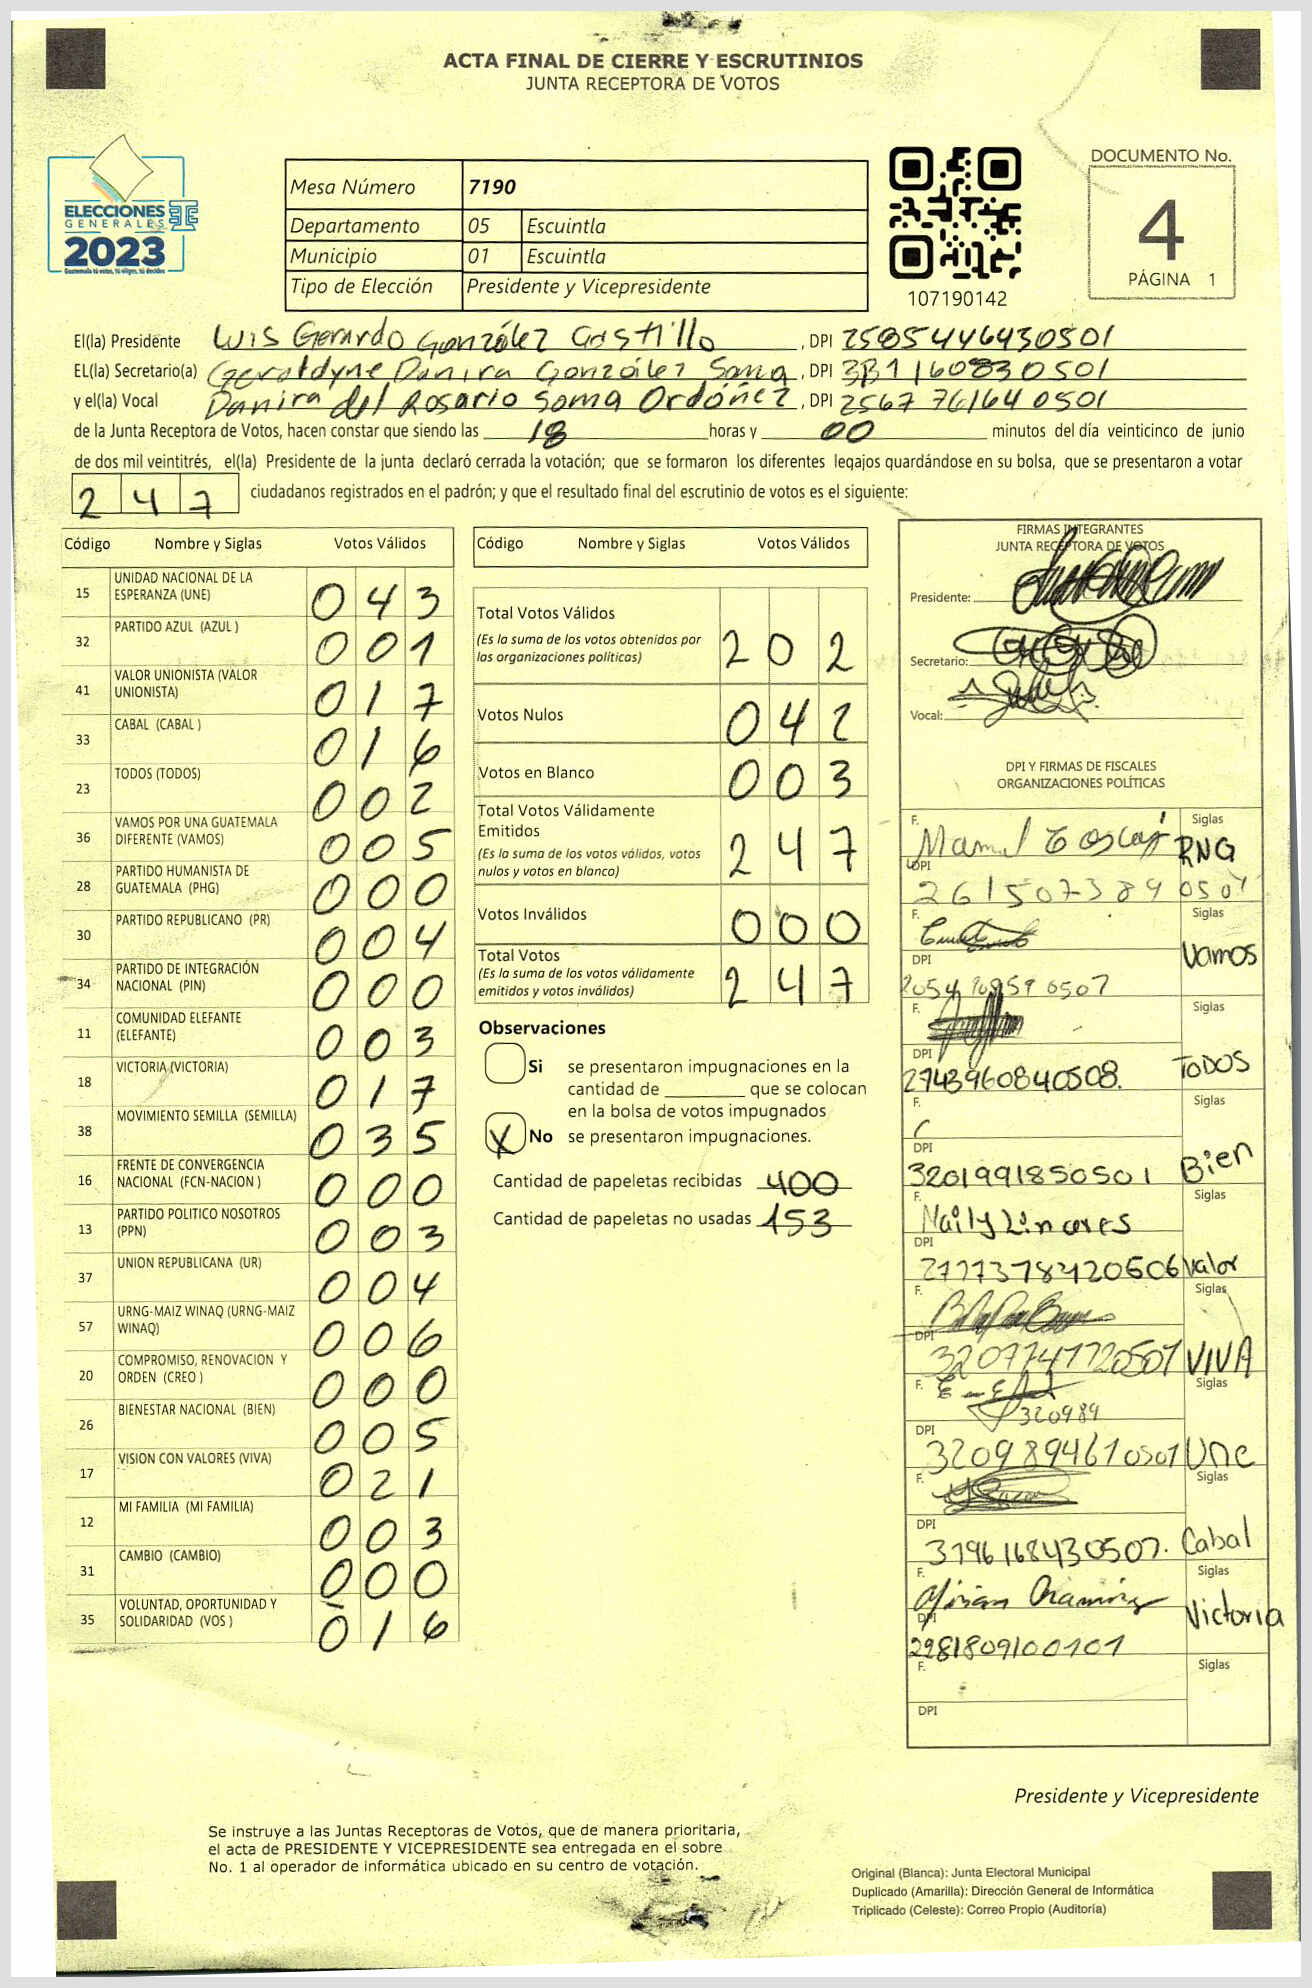 ACTA FINAL DE CIERRE Y ESCRUTINIOS
JUNTA RECEPTORA DE VOTOS
ELECCIONES
GENERALES
2023
Guatemala tú votas, tú eliges, tú decides
Mesa Número 7190
Departamento 05 Escuintla
Municipio 01 Escuintla
Tipo de Elección Presidente y Vicepresidente
107190142
DOCUMENTO No.
4
PÁGINA 1
El(la) Presidente Luis Gerardo González Castillo, DPI 2505446430501
EL(la) Secretario(a) Geraldyne Danira González Soma, DPI
y el(la) Vocal Danira del Rosario Soma Ordóñez, DPI 2567761640501
de la Junta Receptora de Votos, hacen constar que siendo las 18 horas y 00 minutos del día veinticinco de junio
de dos mil veintitrés, el(la) Presidente de la junta declaró cerrada la votación; que se formaron los diferentes legajos guardándose en su bolsa, que se presentaron a votar
247 ciudadanos registrados en el padrón; y que el resultado final del escrutinio de votos es el siguiente:
Código Nombre y Siglas Votos Válidos
15 UNIDAD NACIONAL DE LA ESPERANZA (UNE) 043
32 PARTIDO AZUL (AZUL ) 001
41 VALOR UNIONISTA (VALOR UNIONISTA) 017
33 CABAL (CABAL ) 016
23 TODOS (TODOS) 002
36 VAMOS POR UNA GUATEMALA DIFERENTE (VAMOS) 005
28 PARTIDO HUMANISTA DE GUATEMALA (PHG) 000
30 PARTIDO REPUBLICANO (PR) 004
34 PARTIDO DE INTEGRACIÓN NACIONAL (PIN) 000
11 COMUNIDAD ELEFANTE (ELEFANTE) 003
18 VICTORIA (VICTORIA) 017
38 MOVIMIENTO SEMILLA (SEMILLA) 035
16 FRENTE DE CONVERGENCIA NACIONAL (FCN-NACION ) 000
13 PARTIDO POLITICO NOSOTROS (PPN) 003
37 UNION REPUBLICANA (UR) 004
57 URNG-MAIZ WINAQ (URNG-MAIZ WINAQ) 006
20 COMPROMISO, RENOVACION Y ORDEN (CREO ) 000
26 BIENESTAR NACIONAL (BIEN) 005
17 VISION CON VALORES (VIVA) 021
12 MI FAMILIA (MI FAMILIA) 003
31 CAMBIO (CAMBIO) 000
35 VOLUNTAD, OPORTUNIDAD Y SOLIDARIDAD (VOS ) 016
Código Nombre y Siglas Votos Válidos
Total Votos Válidos 202
(Es la suma de los votos obtenidos por las organizaciones políticas)
Votos Nulos 042
Votos en Blanco 003
Total Votos Válidamente Emitidos 247
(Es la suma de los votos válidos, votos nulos y votos en blanco)
Votos Inválidos 000
Total Votos 247
(Es la suma de los votos válidamente emitidos y votos inválidos)
Observaciones
Si se presentaron impugnaciones en la
cantidad de ________ que se colocan
en la bolsa de votos impugnados
X No se presentaron impugnaciones.
Cantidad de papeletas recibidas 400
Cantidad de papeletas no usadas 153
FIRMAS INTEGRANTES
JUNTA RECEPTORA DE VOTOS
Presidente:
Secretario:
Vocal:
DPI Y FIRMAS DE FISCALES
ORGANIZACIONES POLÍTICAS
F. Siglas RNG
DPI
F. Siglas Vamos
DPI
F. Siglas TODOS
DPI 2743960840508.
F. Siglas Bien
DPI 3201991850501
F. Naily Linares Siglas Valor
DPI
F. Siglas VIVA
DPI
F. 320989 Siglas Une
DPI 3209894610501
F. Siglas Cabal
DPI
F. Siglas Victoria
DPI 2981809100101
F. Siglas
DPI
Presidente y Vicepresidente
Se instruye a las Juntas Receptoras de Votos, que de manera prioritaria,
el acta de PRESIDENTE Y VICEPRESIDENTE sea entregada en el sobre
No. 1 al operador de informática ubicado en su centro de votación.
Original (Blanca): Junta Electoral Municipal
Duplicado (Amarilla): Dirección General de Informática
Triplicado (Celeste): Correo Propio (Auditoría)